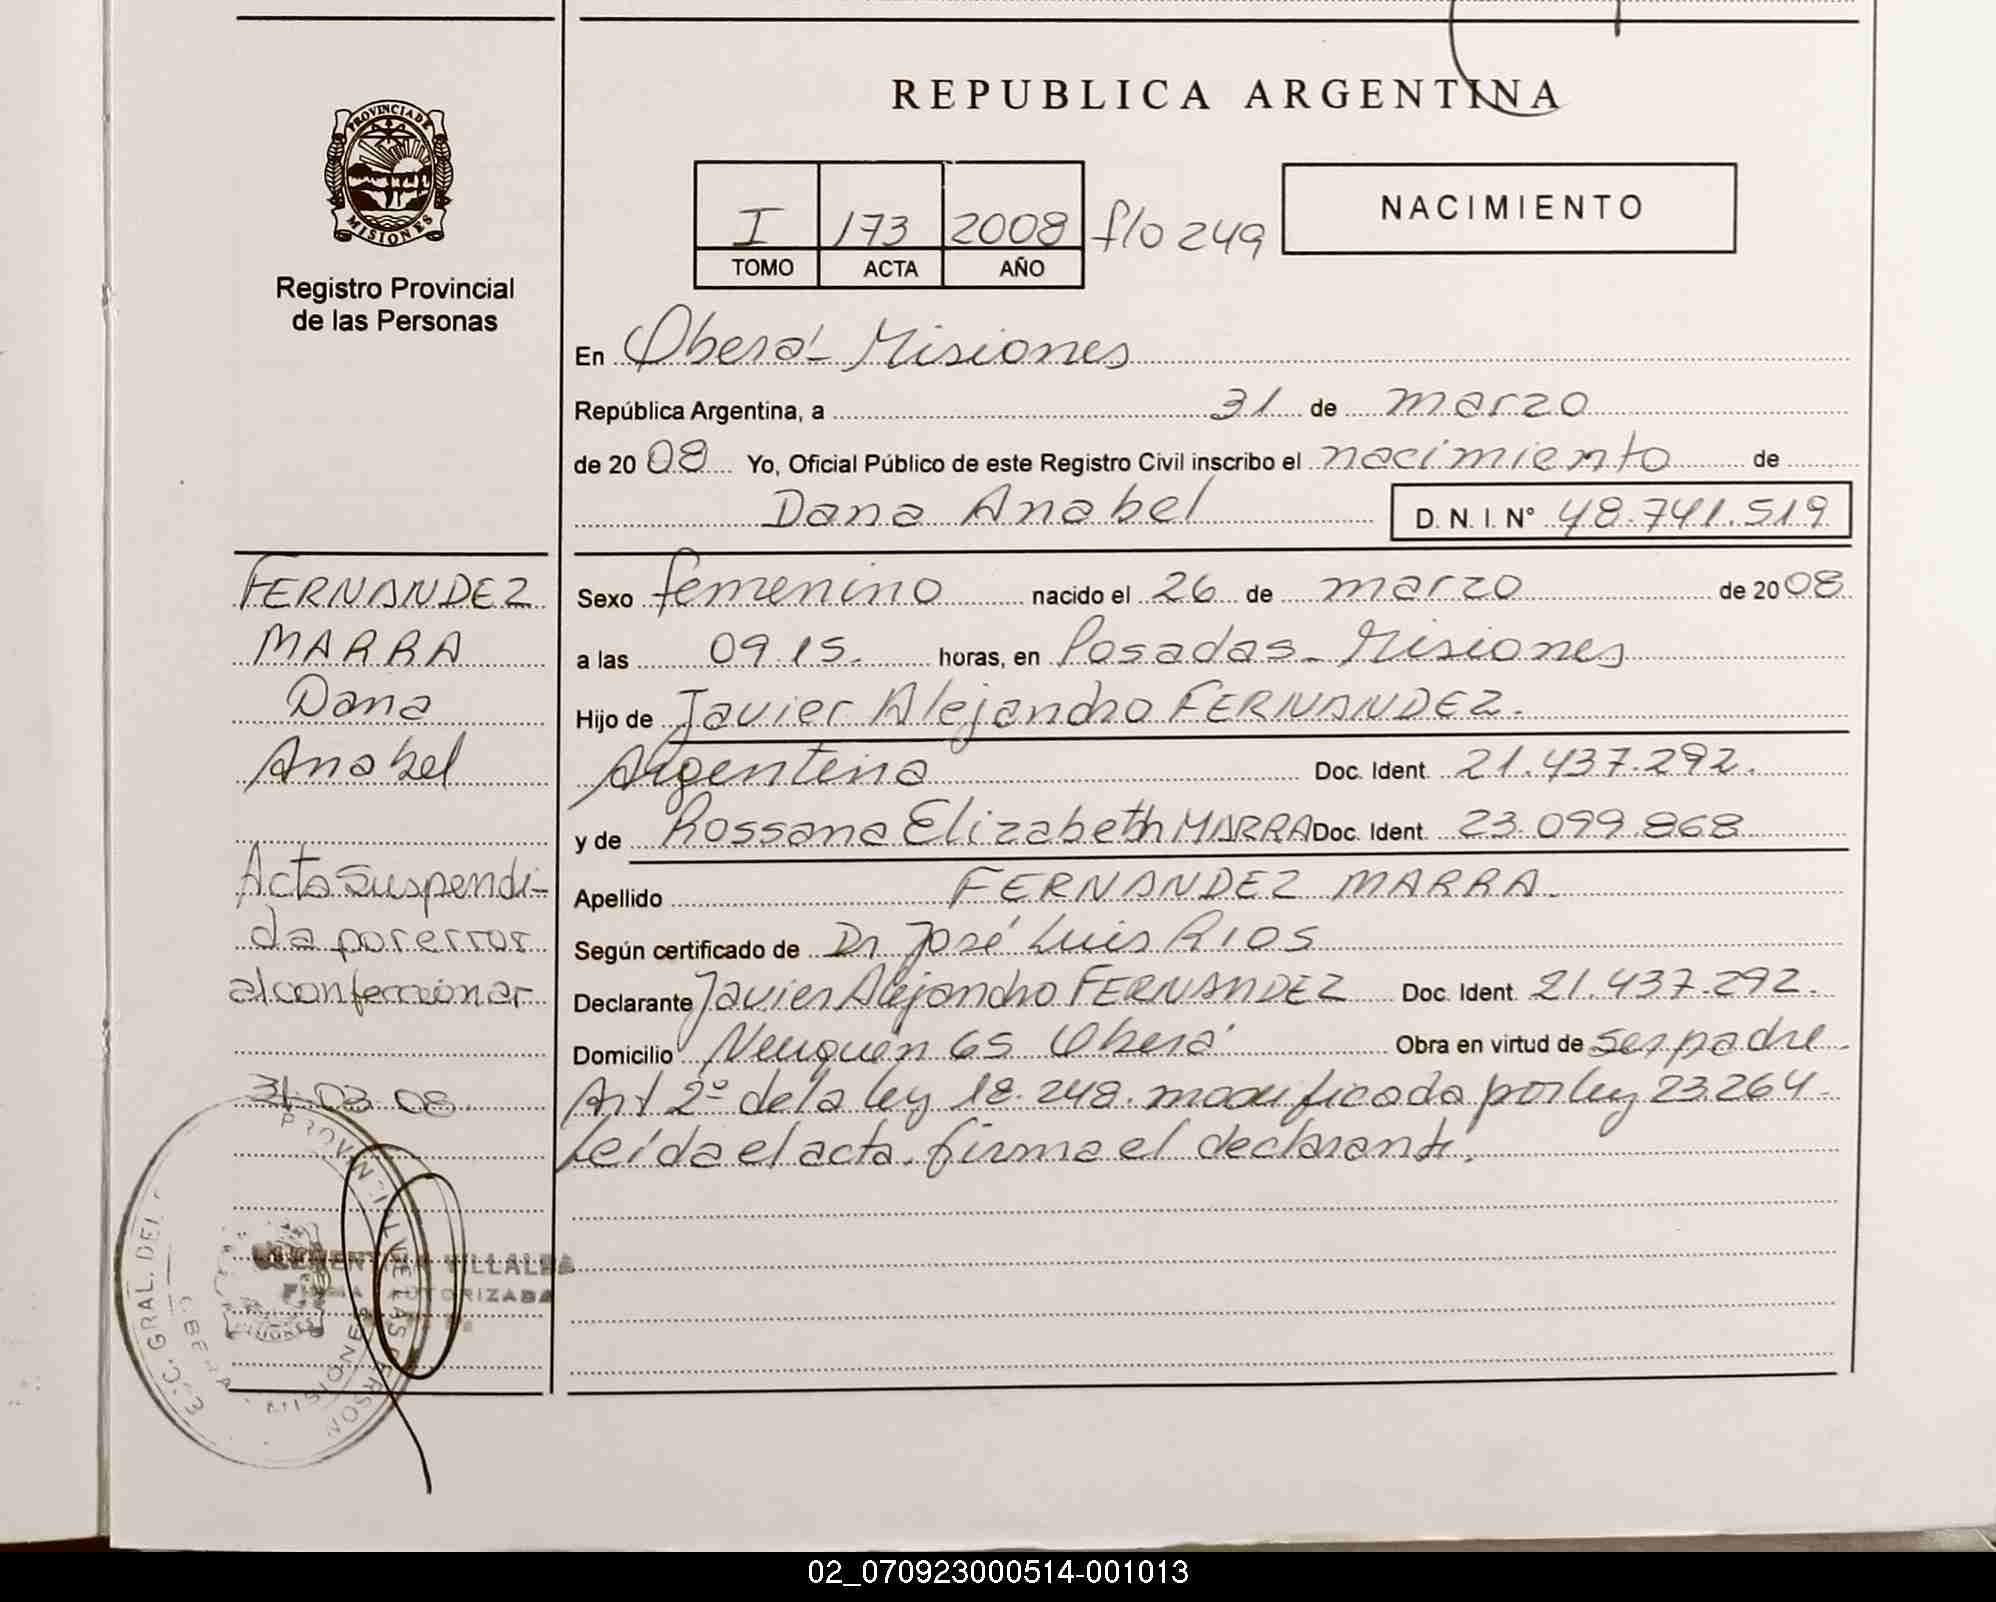 REPUBLICA ARGENTINA
PROVINCIA DE
MISIONES
Registro Provincial
de las Personas
I 173 2008 f/o 249
TOMO ACTA AÑO
NACIMIENTO
En Oberá - Misiones
República Argentina, a 31 de marzo
de 2008 Yo, Oficial Público de este Registro Civil inscribo el nacimiento de
Dana Anabel D. N. I. N° 48.741.519
FERNANDEZ
MARRA
Dana
Anabel
Acta Suspendi-
da por error
al confeccionar
31.03.08.
Sexo femenino nacido el 26 de marzo de 2008
a las 09.15. horas, en Posadas - Misiones
Hijo de Javier Alejandro FERNANDEZ.
Argentina Doc. Ident. 21.437.292.
y de Rossana Elizabeth MARRA Doc. Ident. 23.099.868
Apellido FERNANDEZ MARRA.
Según certificado de Dr José Luis RIOS
Declarante Javier Alejandro FERNANDEZ Doc. Ident. 21.437.292.
Domicilio Neuquén 65 Oberá Obra en virtud de ser padre.
Art 2º de la ley 18.248. modificada por ley 23.264.
Leída el acta, firma el declarante.
VILLALBA
AUTORIZADA
GRAL. DEL
MISIONES
02_070923000514-001013